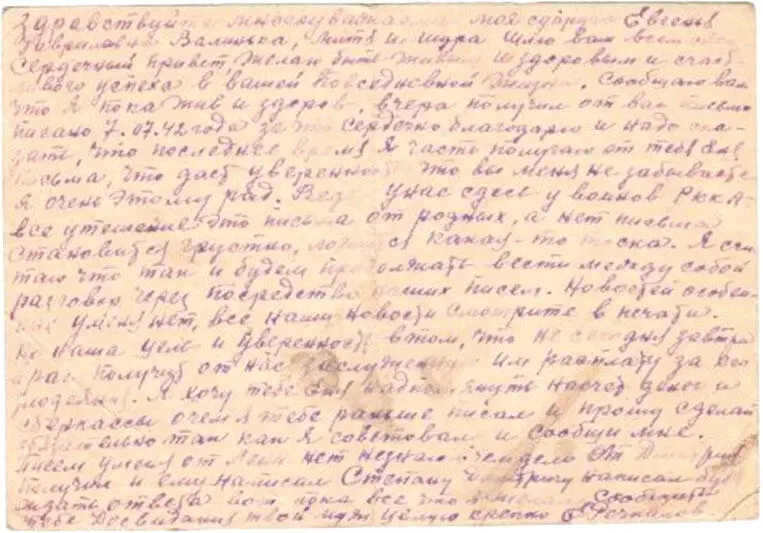 Здравствуйте многоуважаемая моя супруга Евгенья
Гавриловна Валинька, Митя и Шура шлю вам всем
Сердечный привет Желаю быть живым и здоровым и счаст-
ливого успеха в вашей Повседневной жизни. Сообщаю вам
что я пока жив и здоров, вчера получил от вас письмо
писано 7.07.42 года за что сердечно благодарю и надо ска-
зать, что последнее время я часть получаю от тебя
письма, что даст уверенность что вы меня не забываете
я очень этому рад. Ведь у нас сдесь у воинов РККА-
все утешение это письма от родных, а нет письма
становится грустно, какая-то тоска. Я счи
таю что так и будем продолжать вести между собой
разговор через посредство наших писем. Новостей особен-
ных у меня нет, все наши новости смотрите в печати.
Но наша цель и уверенность в том, что не сегодня завтра
враг получит от нас заслуженную им расплату за его
злодеяния. Я хочу тебе Ещё насчет денег и
сберкассы о чем я тебе раньше писал и прошу сделай
обязательно так как я советовал и сообщи мне.
Писем у меня от Лени нет незнаю в чем дело От Дмитрия
получил и ему написал Степану Дмитричу написал буду
ждать ответа вот пока все что я желал сообщить
тебе Досвидания твой муж целую крепко